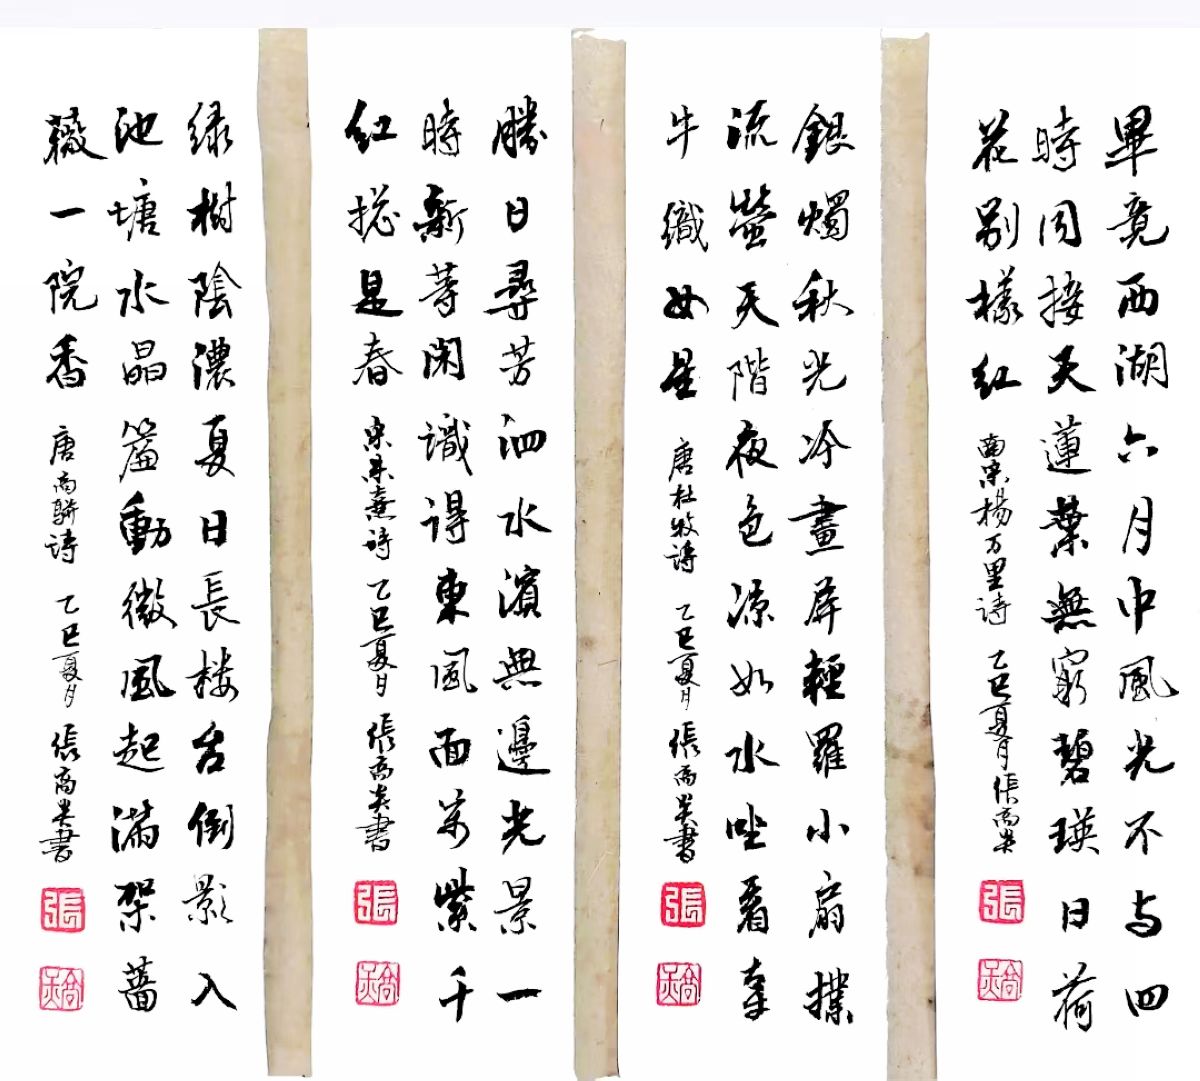 畢竟西湖六月中風光不与四
時同接天蓮葉無窮碧瑛日荷
花别樣紅 南宋楊万里詩 乙巳夏月張
張
銀燭秋光冷畫屏輕羅小扇撲
流螢天階夜色凉如水坐看牽
牛織女星 唐杜牧詩 乙巳夏月張書
張
勝日尋芳泗水濱無邊光景一
時新等閑識得東風面万紫千
紅揔是春 宋朱熹詩 乙巳夏日張書
張
绿樹陰濃夏日長楼台倒影入
池塘水晶簾動微風起满架薔
薇一院香 唐高駢詩 乙巳夏月張書
張